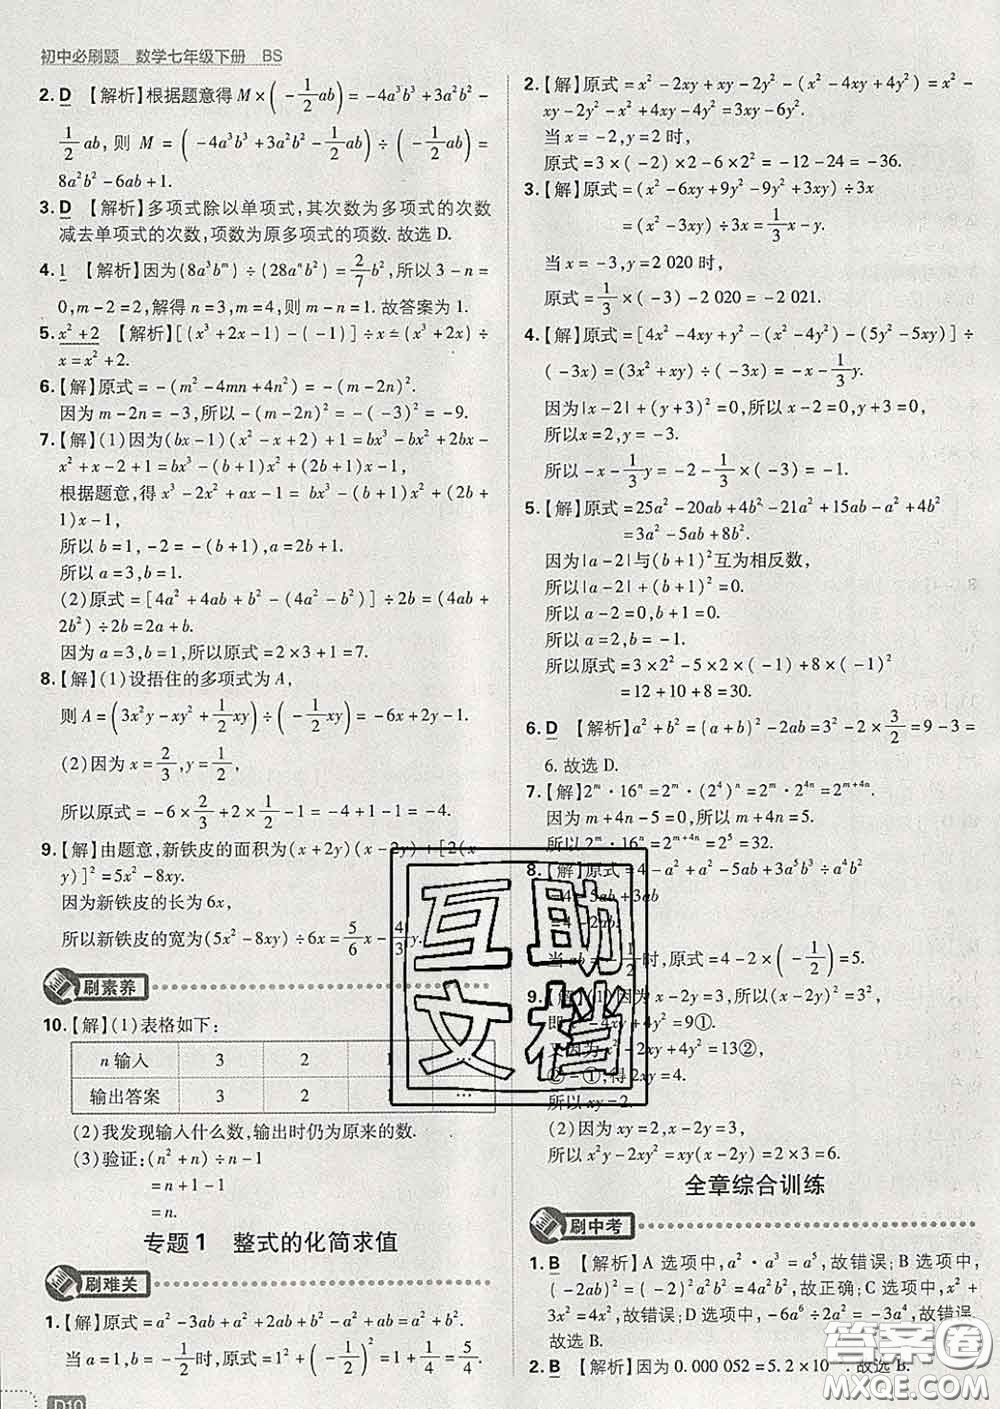 初中必刷题 数学七年级下册 BS
2. D 【解析】根据题意得 M×(-1/2ab)=-4a³b³+3a²b²-
1/2ab,则 M=(-4a³b³+3a²b²-1/2ab)÷(-1/2ab)=
8a²b²-6ab+1.
3. D 【解析】多项式除以单项式,其次数为多项式的次数
减去单项式的次数,项数为原多项式的项数. 故选 D.
4. 1 【解析】因为(8a³bᵐ)÷(28aⁿb²)=2/7b²,所以 3-n
=0,m-2=2,解得 n=3,m=4,则 m-n=1. 故答案为 1.
5. x²+2 【解析】[(x³+2x-1)-(-1)]÷x=(x³+2x)÷
x=x²+2.
6.【解】原式=-(m²-4mn+4n²)=-(m-2n)².
因为 m-2n=-3,所以-(m-2n)²=-(-3)²=-9.
7.【解】(1)因为(bx-1)(x²-x+2)+1=bx³-bx²+2bx-
x²+x-2+1=bx³-(b+1)x²+(2b+1)x-1,
根据题意,得 x³-2x²+ax-1=bx³-(b+1)x²+(2b+
1)x-1,
所以 b=1,-2=-(b+1),a=2b+1.
所以 a=3,b=1.
(2)原式=[4a²+4ab+b²-(4a²-b²)]÷2b=(4ab+
2b²)÷2b=2a+b.
因为 a=3,b=1,所以原式=2×3+1=7.
8.【解】(1)设捂住的多项式为 A,
则 A=(3x²y-xy²+1/2xy)÷(-1/2xy)=-6x+2y-1.
(2)因为 x=2/3,y=1/2,
所以原式=-6×2/3+2×1/2-1=-4+1-1=-4.
9.【解】由题意,新铁皮的面积为(x+2y)(x-2y)+[2(x-
y)]²=5x²-8xy.
因为新铁皮的长为 6x,
所以新铁皮的宽为(5x²-8xy)÷6x=5/6x-4/3y.
刷素养
10.【解】(1)表格如下:
n 输入 3 2 1 …
输出答案 3 2 …
(2)我发现输入什么数,输出时仍为原来的数.
(3)验证:(n²+n)÷n-1
=n+1-1
=n.
专题 1 整式的化简求值
刷难关
1.【解】原式=a²-3ab+a²+2ab+b²-a²+ab=a²+b².
当 a=1,b=-1/2时,原式=1²+(-1/2)²=1+1/4=5/4.
D10
2.【解】原式=x²-2xy+xy-2y²-(x²-4xy+4y²)=x²-
xy-2y²-x²+4xy-4y²=3xy-6y².
当 x=-2,y=2 时,
原式=3×(-2)×2-6×2²=-12-24=-36.
3.【解】原式=(x²-6xy+9y²-9y²+3xy)÷3x
=(x²-3xy)÷3x=1/3x-y.
当 x=-3,y=2 020 时,
原式=1/3×(-3)-2 020=-2 021.
4.【解】原式=[4x²-4xy+y²-(x²-4y²)-(5y²-5xy)]÷
(-3x)=(3x²+xy)÷(-3x)=-x-1/3y.
因为|x-2|+(y+3)²=0,所以 x-2=0,y+3=0,
所以 x=2,y=-3.
所以-x-1/3y=-2-1/3×(-3)=-1.
5.【解】原式=25a²-20ab+4b²-21a²+15ab-a²+4b²
=3a²-5ab+8b².
因为|a-2|与(b+1)²互为相反数,
所以|a-2|+(b+1)²=0.
所以 a-2=0,b+1=0.
所以 a=2,b=-1.
所以原式=3×2²-5×2×(-1)+8×(-1)²
=12+10+8=30.
6. D 【解析】a²+b²=(a+b)²-2ab=3²-2×3/2=9-3=
6. 故选 D.
7.【解】2ᵐ·16ⁿ=2ᵐ·(2⁴)ⁿ=2ᵐ·2⁴ⁿ=2ᵐ⁺⁴ⁿ.
因为 m+4n-5=0,所以 m+4n=5.
所以 2ᵐ·16ⁿ=2ᵐ⁺⁴ⁿ=2⁵=32.
8.【解】原式=4-a²+a²-5ab+3a⁵b³÷a⁴b²
=4-5ab+3ab
=4-2ab.
当 ab=-1/2时,原式=4-2×(-1/2)=5.
9.【解】(1)因为 x-2y=3,所以(x-2y)²=3²,
即 x²-4xy+4y²=9①.
又因为 x²-2xy+4y²=13②,
②-①,得 2xy=4.
所以 xy=2.
(2)因为 xy=2,x-2y=3,
所以 x²y-2xy²=xy(x-2y)=2×3=6.
全章综合训练
刷中考
1. B 【解析】A 选项中,a²·a³=a⁵,故错误;B 选项中,
(-2ab)²=(-2)²a²b²=4a²b²,故正确;C 选项中,x²+
3x²=4x²,故错误;D 选项中,-6a⁶÷2a²=-3a⁴,故错误.
故选 B.
2. B 【解析】因为 0.000 052=5.2×10 .故选 B.
互助
文档
答案圈
MXQE.COM